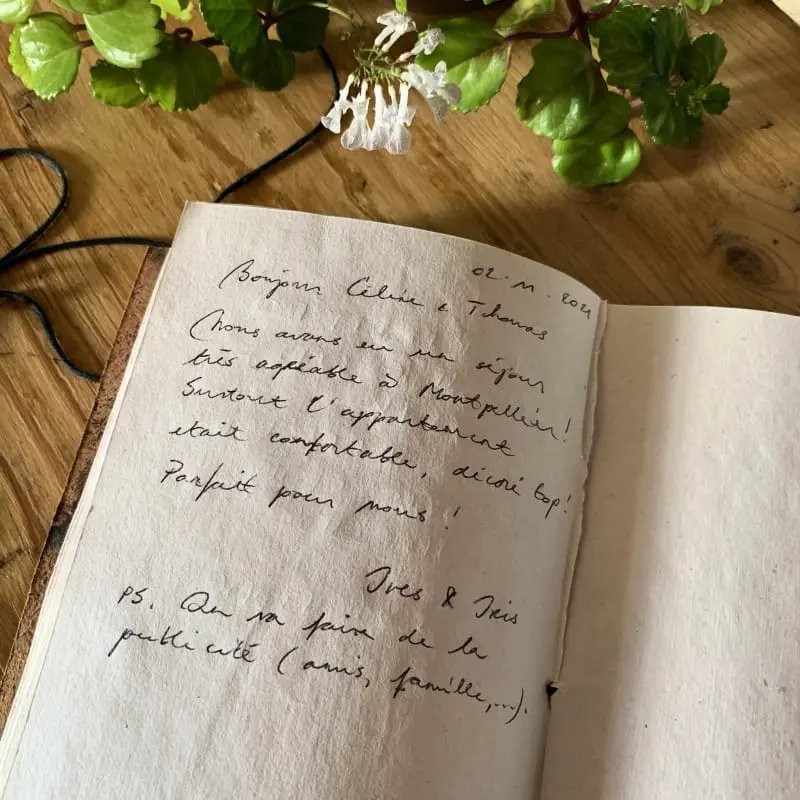 02.11.2021
Bonjour Céline & Thomas
Nous avons eu un séjour
très agréable à Montpellier!
Surtout l'appartement
etait confortable, décoré top!
Parfait pour nous!
Ives & Iris
PS. On va faire de la
publicité (amis, famille,...).